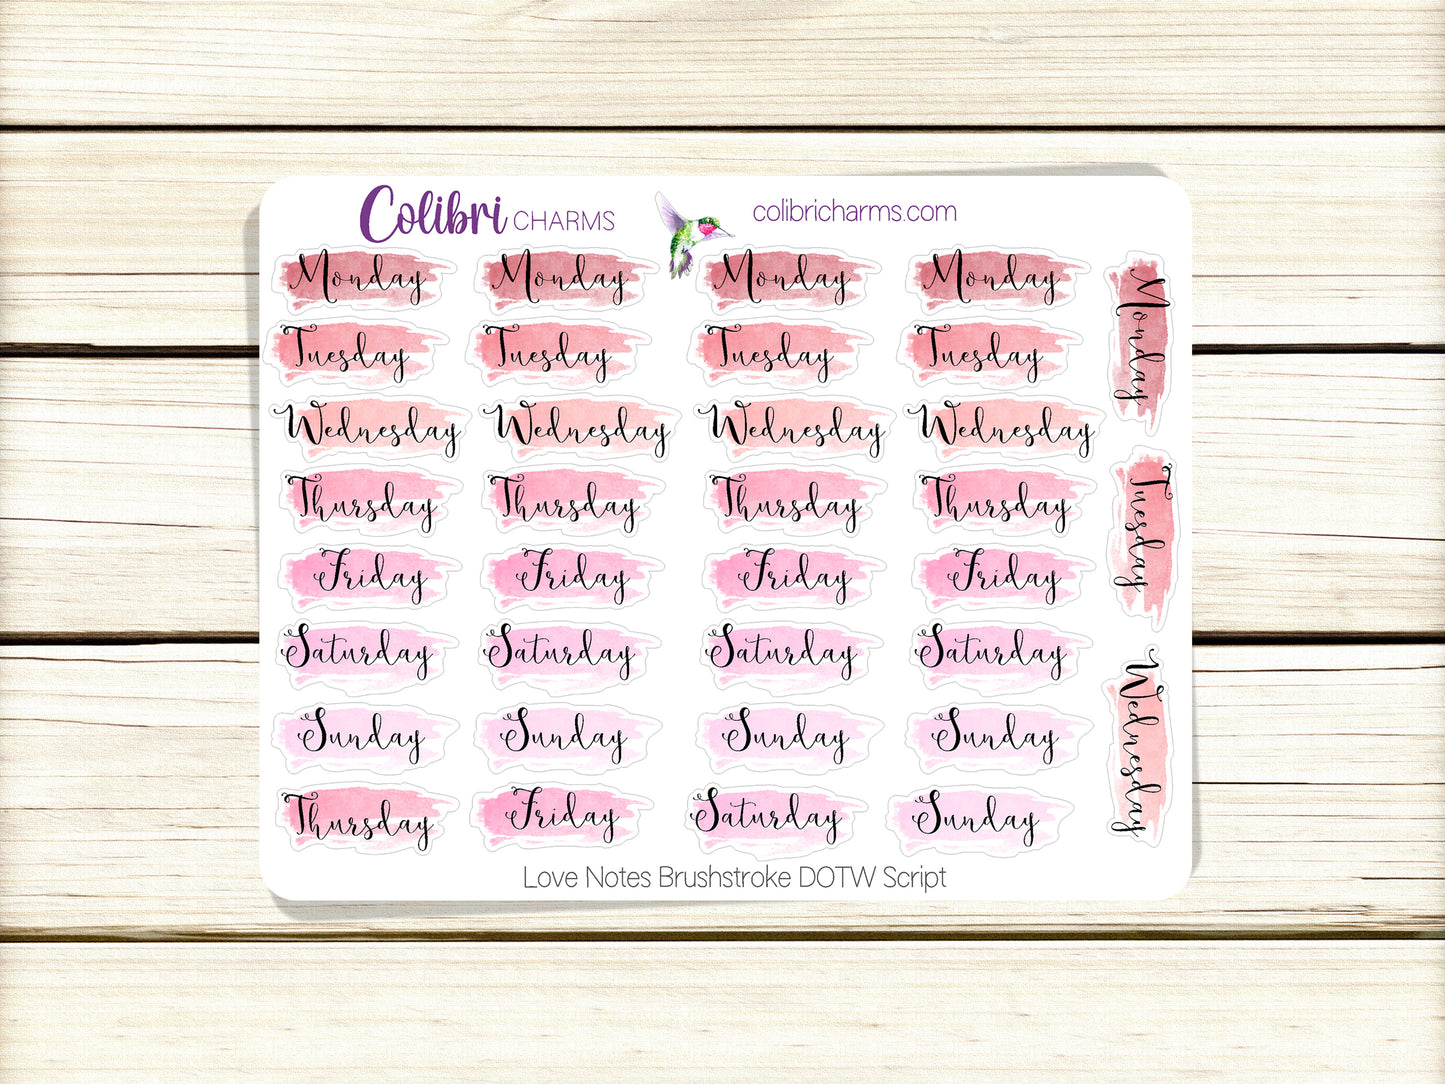 Colibri CHARMS
colibricharms.com
Monday Monday Monday Monday
Tuesday Tuesday Tuesday Tuesday
Wednesday Wednesday Wednesday Wednesday
Thursday Thursday Thursday Thursday
Friday Friday Friday Friday
Saturday Saturday Saturday Saturday
Sunday Sunday Sunday Sunday
Thursday Friday Saturday Sunday
Monday
Tuesday
Wednesday
Love Notes Brushstroke DOTW Script